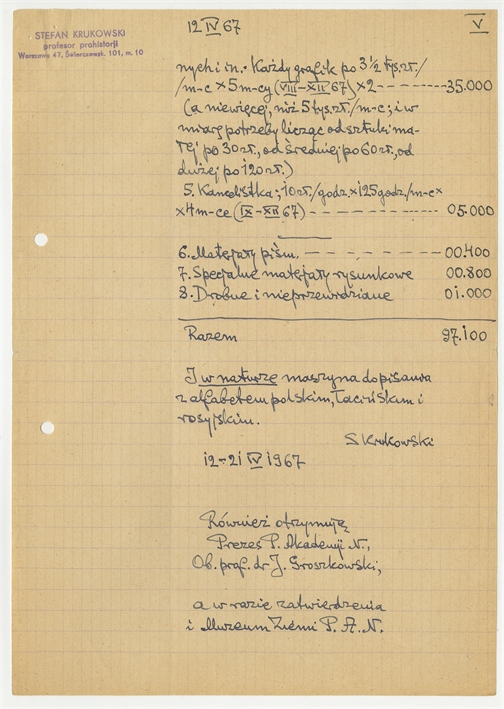 STEFAN KRUKOWSKI
profesor prohistorji
Warszawa 47, Świerczewsk. 101, m. 10
12 IV 67
V
nych i in. Każdy grafik po 3 1/2 tys. zł./
/m-c × 5 m-cy (VIII-XII 67) × 2 - - - - - - - 35.000
(a niewięcej, niż 5 tys. zł./m-c; i w
miarę potrzeby licząc od sztuki ma-
łej po 30 zł., od średniej po 60 zł., od
dużej po 120 zł.)
5. Kancelistka; 10 zł./godz. × 125 godz./m-c ×
× 4 m-ce (IX-XII 67) - - - - - - - - - - 05.000
6. Materjały piśm. - - - - - - - - - 00.400
7. Specjalne materjały rysunkowe 00.800
8. Drobne i nieprzewidziane 01.000
Razem 97.100
I w naturze maszyna do pisania
z alfabetem polskim, łacińskim i
rosyjskim.
S Krukowski
12-21 IV 1967
Również otrzymują
Prezes P. Akademji N.,
Ob. prof. dr J. Groszkowski,
a w razie zatwierdzenia
i Muzeum Ziemi P. A. N.